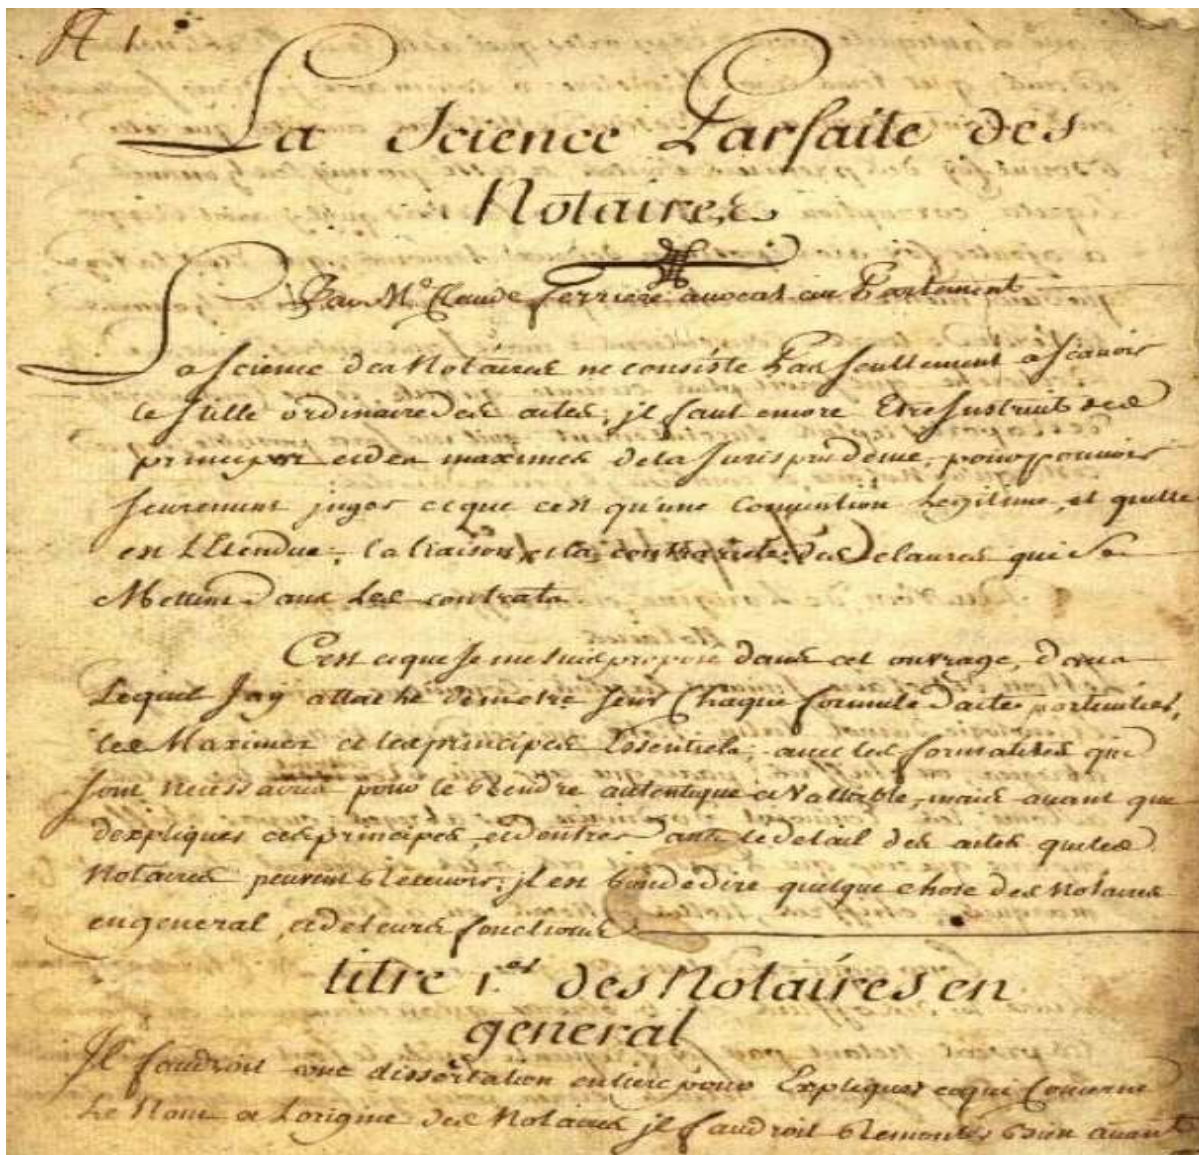 A 1
La Science Parfaite des
Notaires
Par Me Claude ferriere avocat au Parlement
La science des Notaires ne consiste Pas seullement a scavoir
le stille ordinaire des actes; jl faut encore Etre Jnstruit des
principes et des maximes de la Jurisprudence, pour pouvoir
seurement juger ce que c'est qu'une Convention Legitime, et quelle
est L'Etendue, la liaison, et la contrarieté des clauses qui se
Mettent Dans Les contrats.
C'est ce que Je me suis proposé dans cet ouvrage, dans
Lequel J'ay attaché de metre seur Chaque formule d'actes
les Maximes et les principes Essentiels; avec les formalités qui
sont necessaires pour le Rendre autentique et Vallable, mais avant que
d'expliquer ces principes, et d'entrer dans le detail des actes que les
Notaires peuvent Recevoir; jl est bon de dire quelque chose des Notaires
en general, et de leurs fonctions
titre 1.er des Notaires en
general
Jl faudroit une dissertation entiere pour Expliquer ce qui Concerne
Le Nom et L'origine des Notaires jl faudroit Remonter bien avant